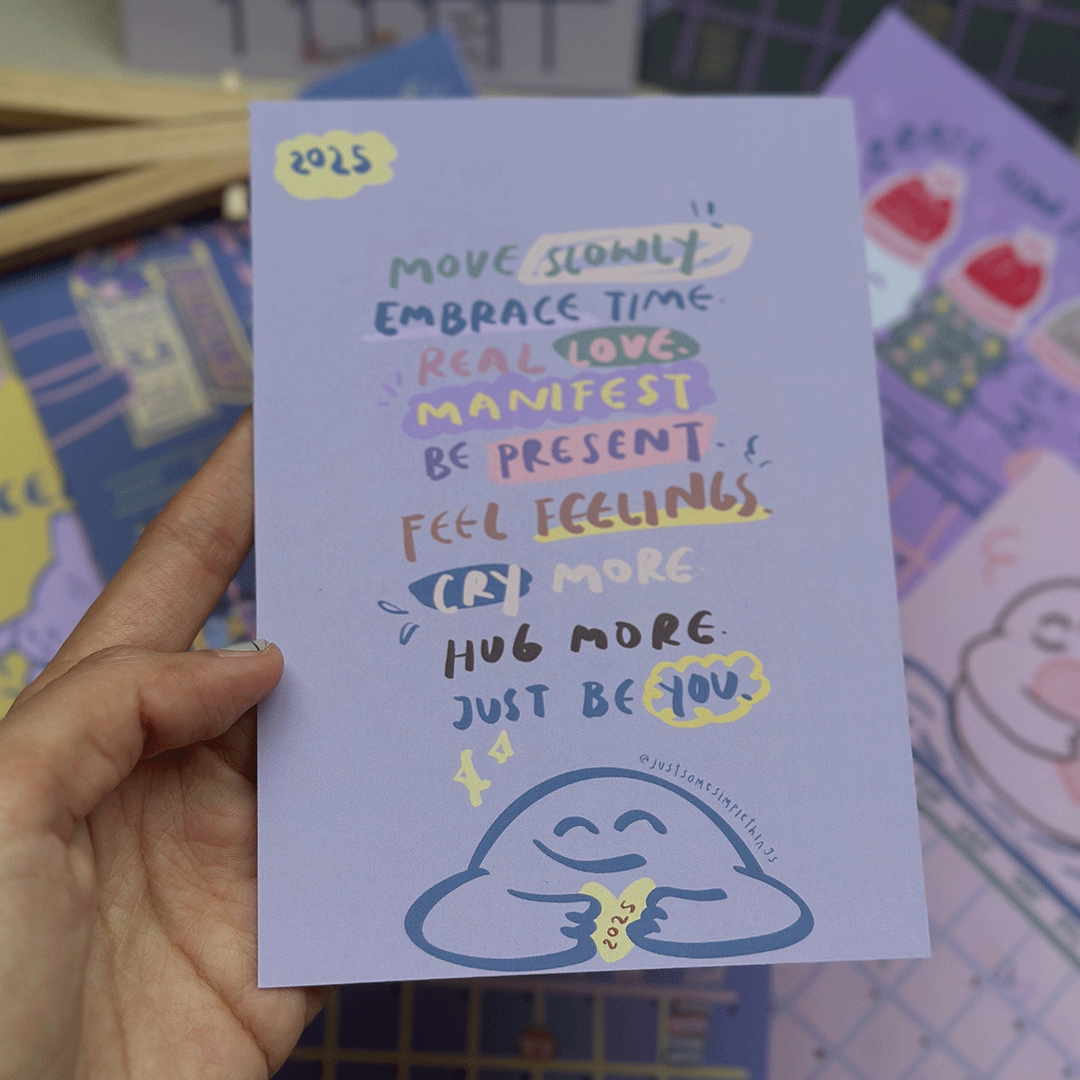 2025
MOVE SLOWLY.
EMBRACE TIME.
REAL LOVE.
MANIFEST
BE PRESENT.
FEEL FEELINGS.
CRY MORE.
HUG MORE.
JUST BE YOU.
@justsomesimplethings
2025